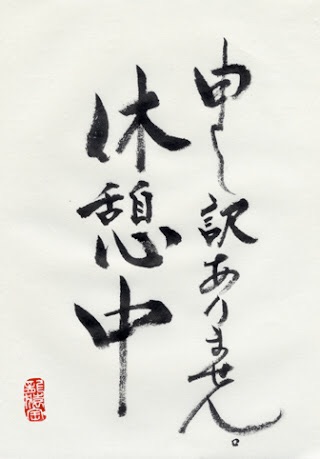 申し訳ありません。
休憩中